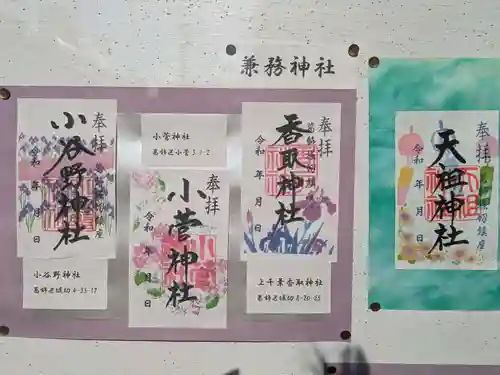 兼務神社
奉拝
小谷野神社
令和 年 月 日
小谷野神社
葛飾区堀切4-33-17
小菅神社
葛飾区小菅3-1-2
奉拝
小菅神社
令和 年 月 日
奉拝
葛飾堀切鎮座
香取神社
令和 年 月 日
上千葉香取神社
葛飾区堀切8-20-23
奉拝
天祖神社
令和 年 月 日